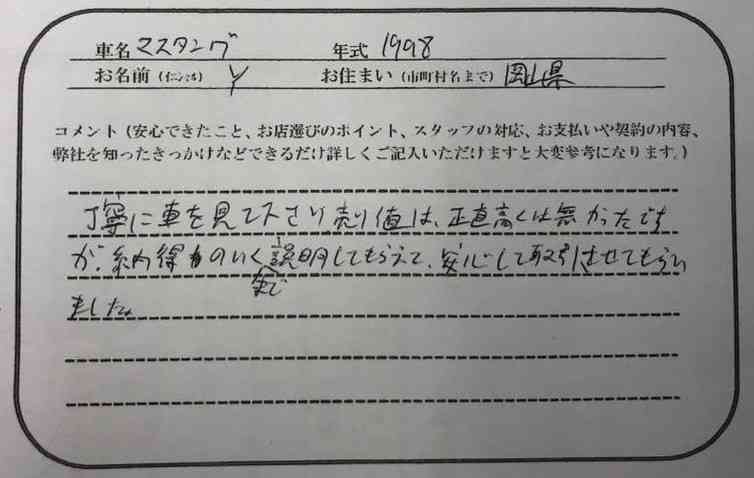 車名 マスタング 年式 1998
お名前（イニシャル） Y お住まい（市町村名まで） 岡山県
コメント（安心できたこと、お店選びのポイント、スタッフの対応、お支払いや契約の内容、
弊社を知ったきっかけなどできるだけ詳しくご記入いただけますと大変参考になります。）
丁寧に車を見て下さり売り値は、正直高くは無かったです
が、納得のいく説明してもらえて、安心して取引させてもらい
まで
ました。